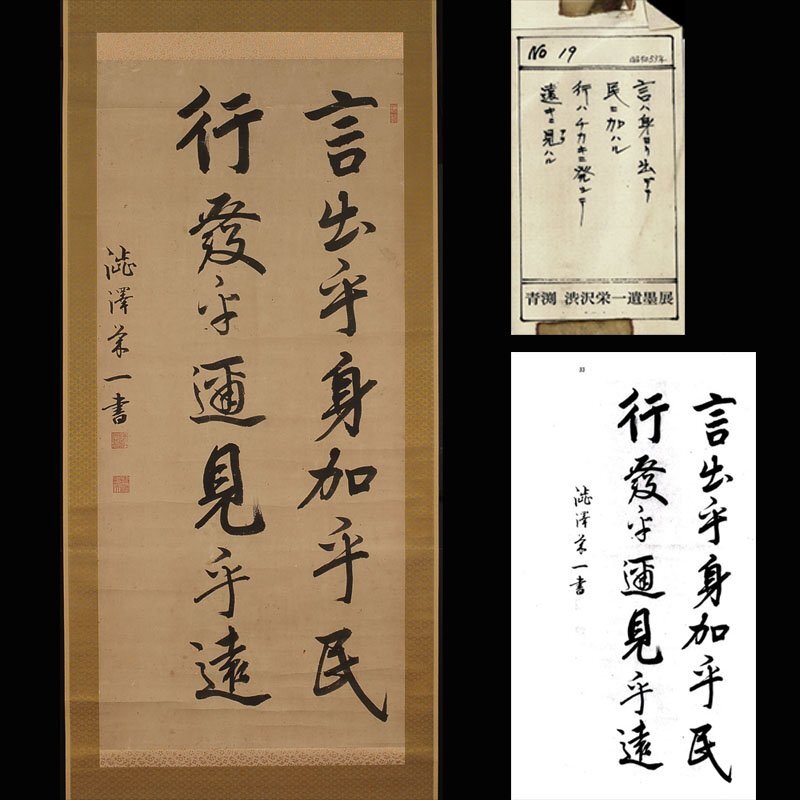 言出乎身加乎民
行發乎邇見乎遠
澁澤榮一書
No 19
言ハ身ヨリ出デテ
民ニ加ハル
行ハチカキニ発シテ
遠キニ見ハル
青渕 渋沢栄一遺墨展
33
言出乎身加乎民
行發乎邇見乎遠
澁澤榮一書